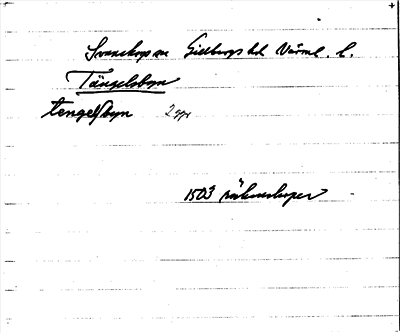 Svanskogs sn Gillbergs hd Värml. l.
Tängelsbyn
tengelsbyn 2 ggr
1503 räkenskaper